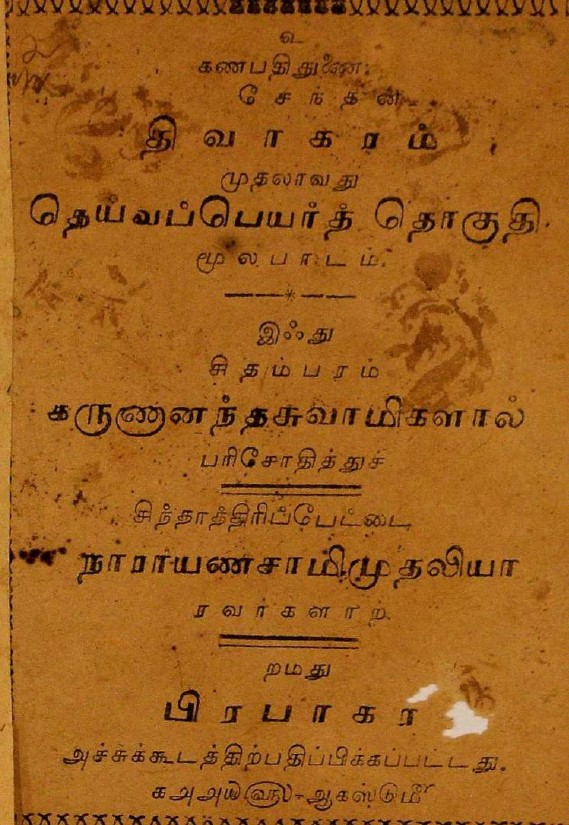 உ
கணபதிதுணை.
சேந்தன்
திவாகரம்
முதலாவது
தெய்வப்பெயர்த் தொகுதி.
மூலபாடம்.
இஃது
சிதம்பரம்
கருணானந்தசுவாமிகளால்
பரிசோதித்துச்
சிந்தாத்திரிப்பேட்டை
நாராயணசாமிமுதலியா
ரவர்களாற்
றமது
பிரபாகர
அச்சுக்கூடத்திற்பதிப்பிக்கப்பட்டது.
ஆகஸ்டு